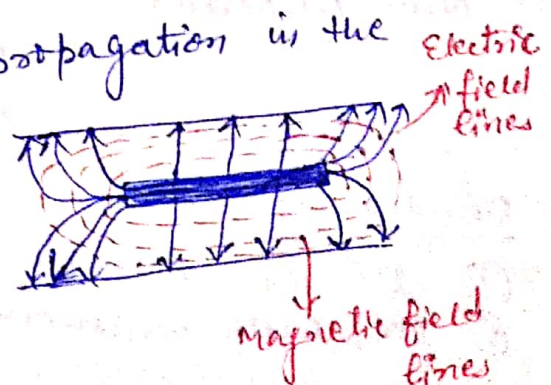 propagation in the
Electric
field
lines
Magnetic field
lines